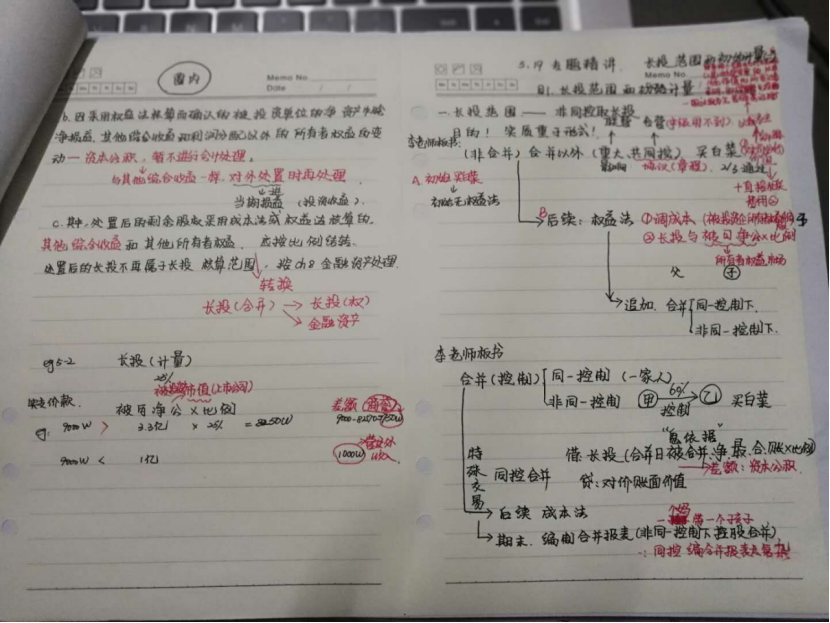 国内
Memo No.
Date / /
b. 因采用权益法核算而确认的被投资单位的净资产变动
净损益、其他综合收益和利润分配以外的所有者权益的变
动——资本公积,暂不进行会计处理。
与其他综合收益一样,对外处置时再处理
当期损益(投资收益)。
c. 其中,处置后的剩余股权采用成本法或权益法核算的,
其他综合收益和其他所有者权益,应按比例结转。
处置后的长投不再属于长投核算范围,按ch8金融资产处理
转换
长投(合并) → 长投(权)
金融资产
eg5-2 长投(计量)
25%
市值(上市公司)
价款 被可净公×比例
差额 商誉
9000W > 3.3亿 × 25% = 8250W
9000W < 1亿
1000W
营业外
收入
5.19 专题精讲 长投范围和初始计量
Memo No.
01. 长投范围和初始计量
一、长投范围——非同控取长投
目的!实质重于形式!
李老师板书:
(非合并)合并以外(重大、共同控)买白菜
影响 协议(章程) 2/3通过
A. 初始买菜
初始无权益法
+直接相关
费用
B后续:权益法 ①调成本
②长投与被可净公×比例
所有者权益
父 子
追加、合并 同一控制下
非同一控制下.
李老师板书
合并(控制) 同一控制(一家人)
非同一控制 甲 60% 乙 买白菜
控制
"有依据"
特殊交易
同控合并 借:长投(合并日被合并净、最、合、账×比例)
差额:资本公积
贷:对价账面价值
后续 成本法
一 第一个子孩子
期末、编制合并报表(非同一控制下控股合并)
∵同控 编合并报表太复杂